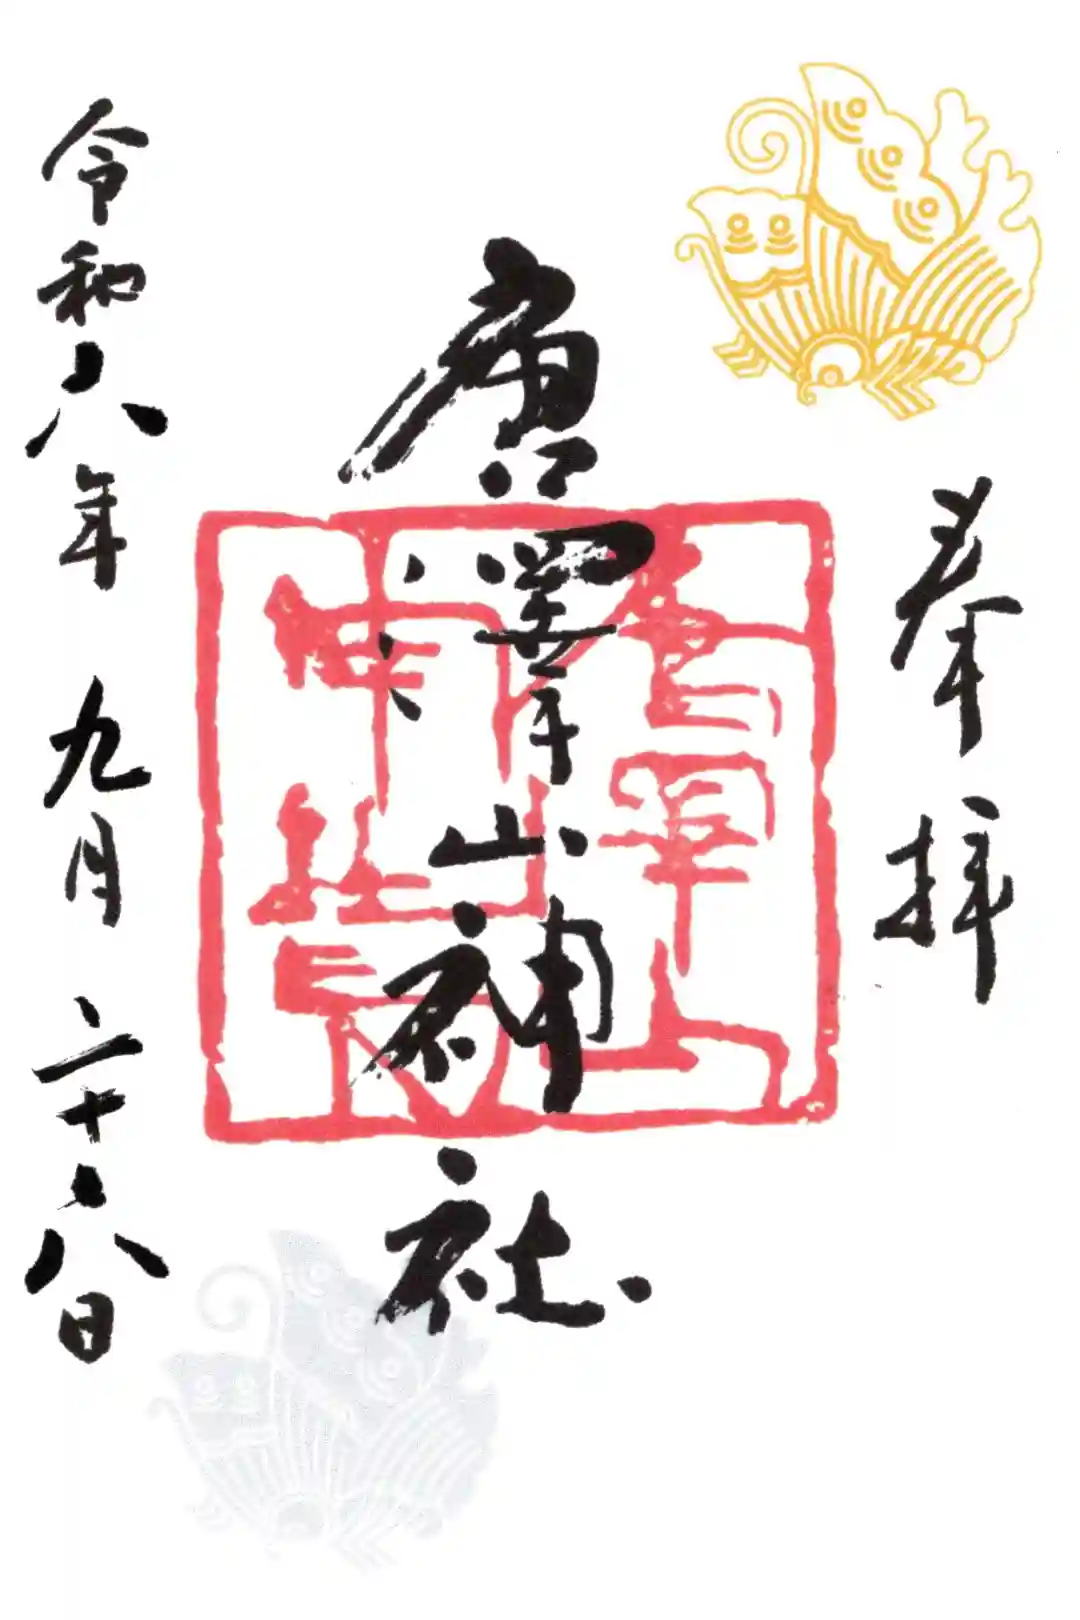 奉拝
唐澤山神社
唐澤山
神社印
令和六年 九月 二十六日